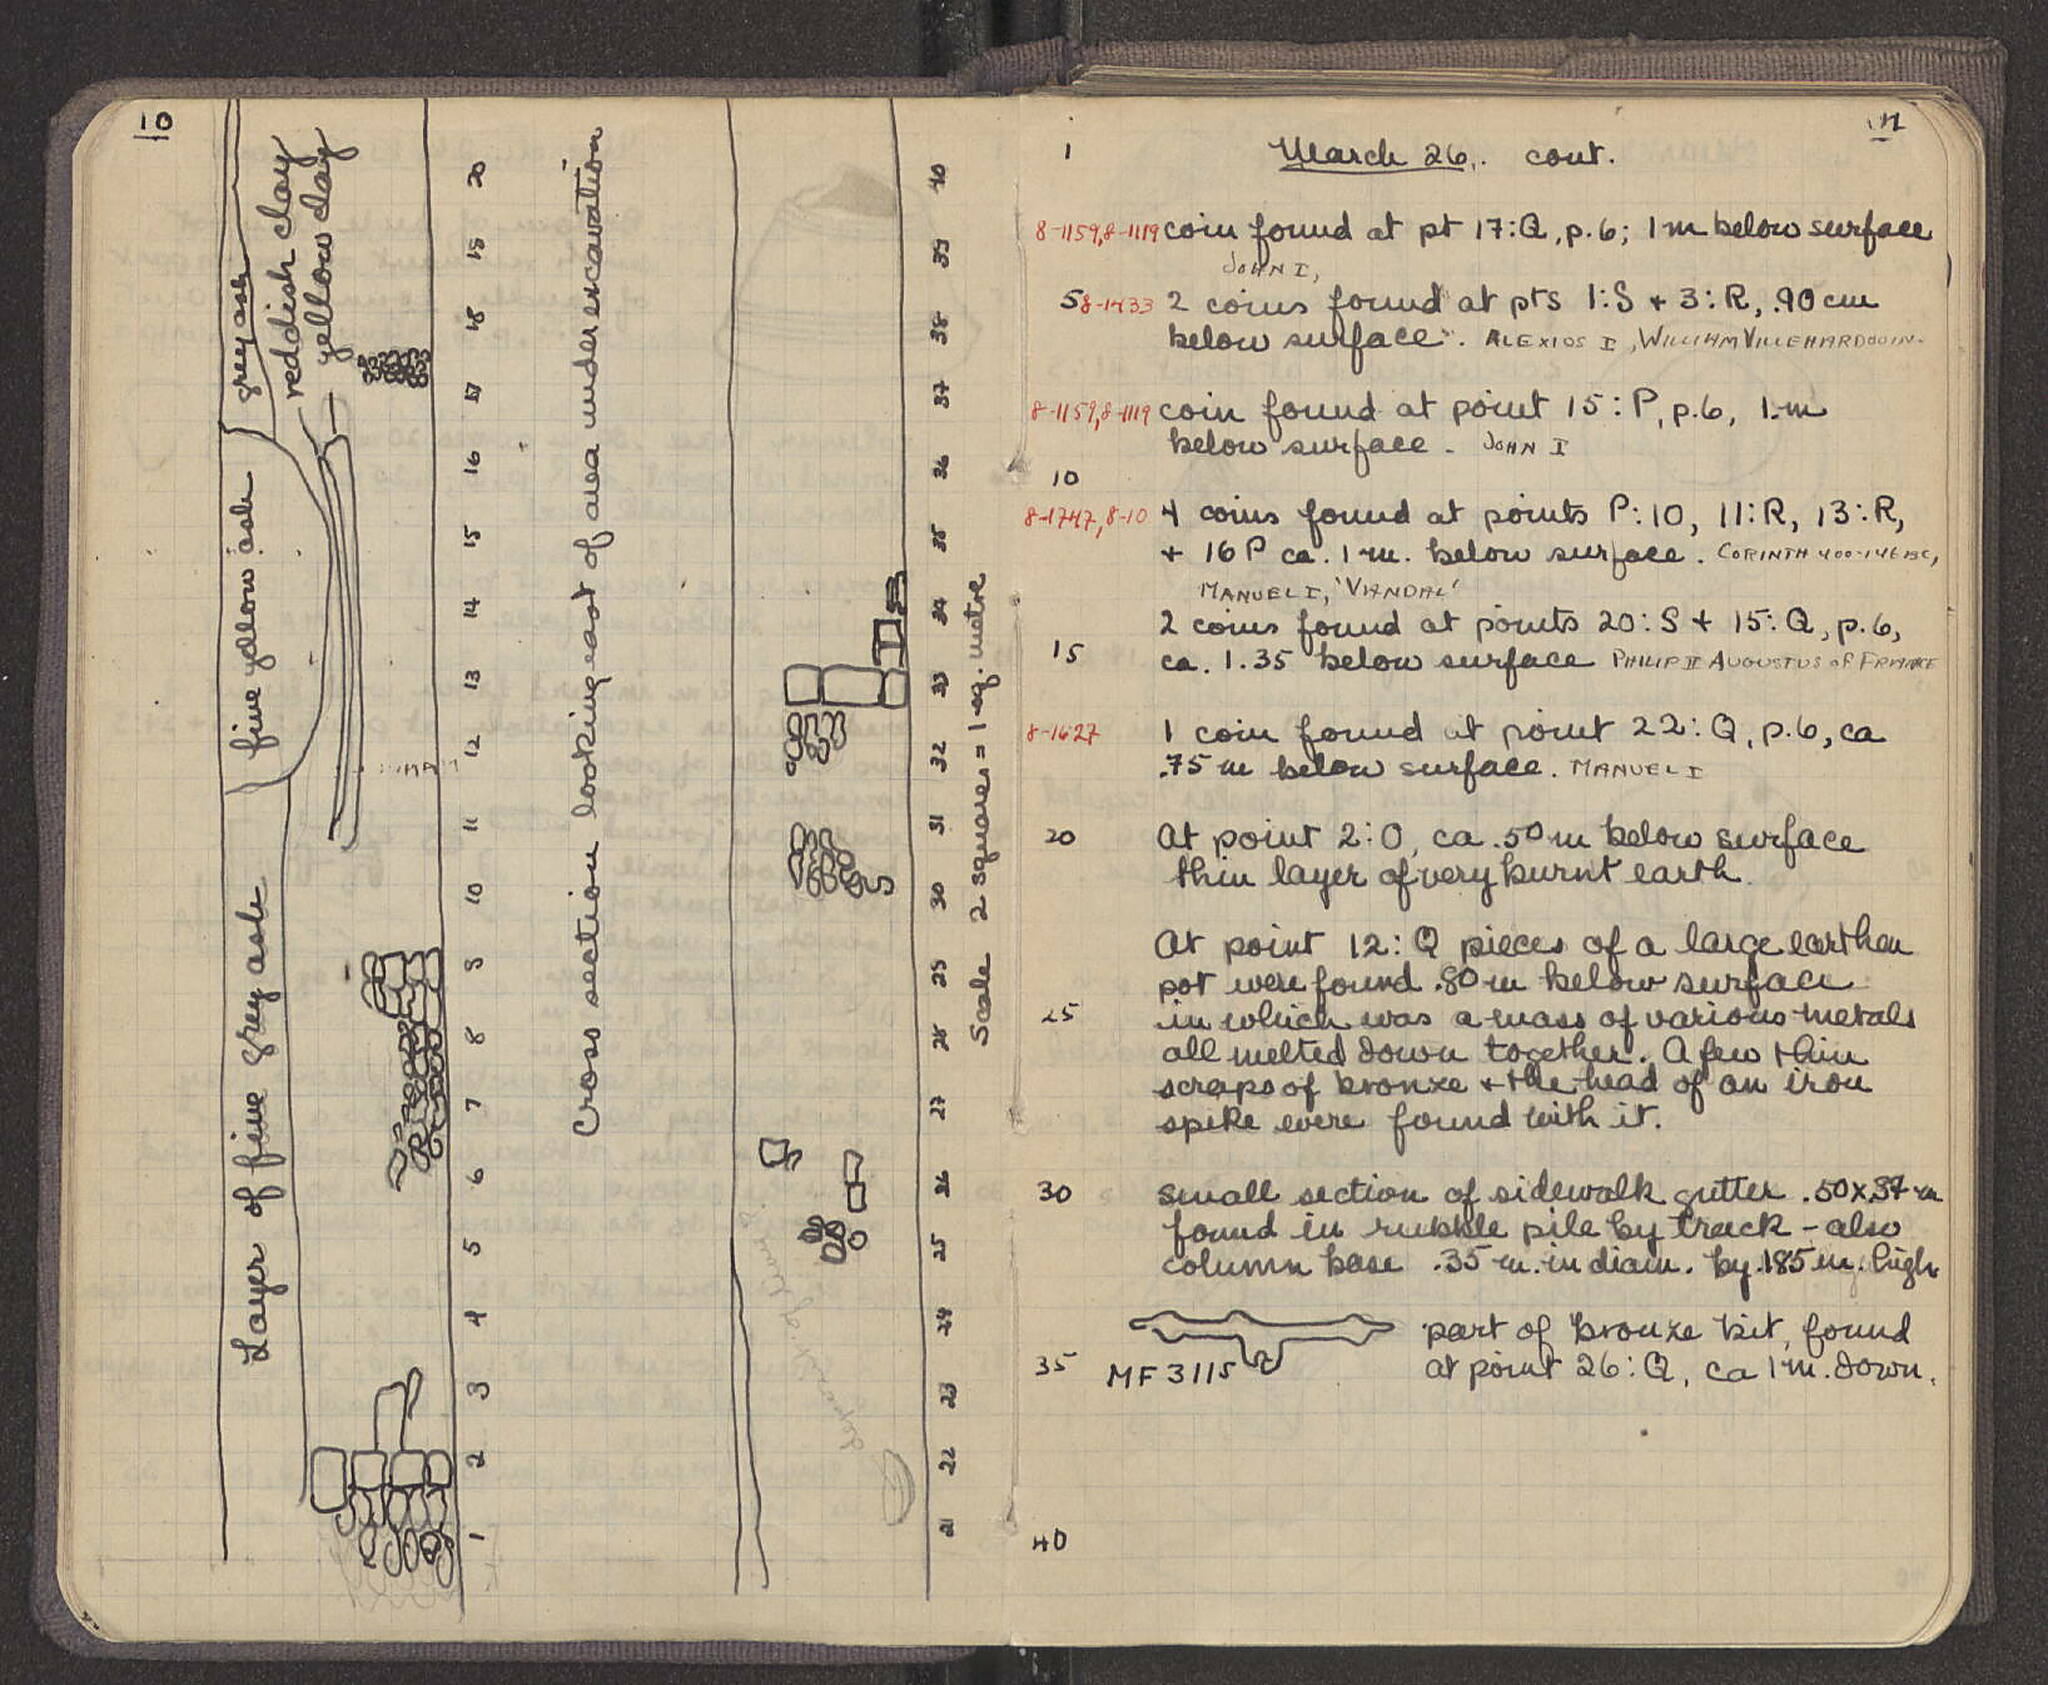 10
grey ash
reddish clay
yellow clay
fine yellow ash
Layer of fine grey ash
1 2 3 4 5 6 7 8 9 10 11 12 13 14 15 16 17 18 19 20
Cross section looking east of area under excavation
21 22 23 24 25 26 27 28 29 30 31 32 33 34 35 36 37 38 39 40
Scale 2 squares = 1 sq. metre
11
1 March 26. cont.
8-1159, 8-1119 coin found at pt 17:Q, p.6; 1m below surface
JOHN I,
5 8-1433 2 coins found at pts 1:S + 3:R, .90 cm
below surface. ALEXIOS I, WILLIAM VILLEHARDOUIN.
8-1159, 8-1119 coin found at point 15:P, p.6, 1m
below surface. JOHN I
10
8-1747, 8-10 4 coins found at points P:10, 11:R, 13:R,
+ 16P ca. 1m. below surface. CORINTH 400-146 BC,
MANUEL I, 'VANDAL'
2 coins found at points 20:S + 15:Q, p.6,
15 ca. 1.35 below surface PHILIP II AUGUSTUS OF FRANCE
8-1627 1 coin found at point 22:Q, p.6, ca
.75 m below surface. MANUEL I
20 At point 2:O, ca .50 m below surface
thin layer of very burnt earth.
At point 12:Q pieces of a large earthen
pot were found .80 m below surface
25 in which was a mass of various metals
all melted down together. A few thin
scraps of bronze + the head of an iron
spike were found with it.
30 small section of sidewalk gutter .50 x .37 m
found in rubble pile by track - also
column base .35 m. in diam. by .185 m. high
part of bronze bit, found
35 MF 3115 at point 26:Q, ca 1m. down.
40